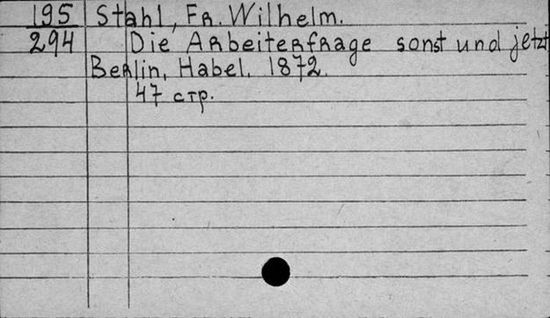 195 Stahl, Fr. Wilhelm.
294 Die Arbeiterfrage sonst und jetzt
Berlin, Habel. 1872.
47 стр.